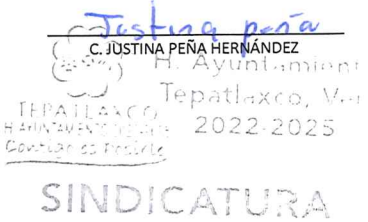 Justina peña
C. JUSTINA PEÑA HERNÁNDEZ
H. Ayuntamient
Tepatlaxco, Ver
2022-2025
TEPATLAXCO
H. AYUNTAMIENTO
Contigo es Posible
SINDICATURA